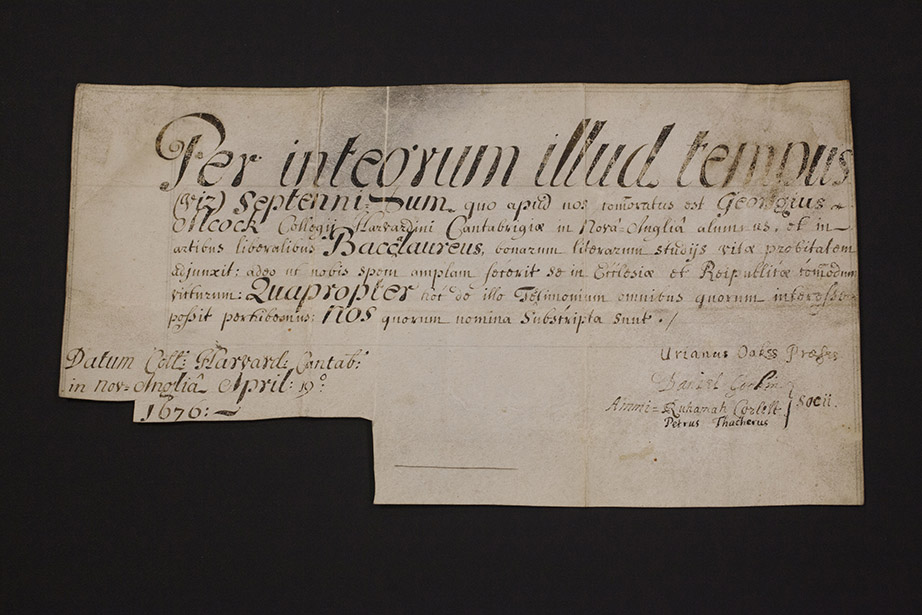 Per integrum illud tempus
(viz) Septenni-um quo apud nos com̄oratus est Georgius
Alcock Collegij Harvardini Cantabrigiæ in Nova-Angliâ alumnus, et in
artibus liberalibus Baccalaureus, bonarum literarum studijs vitæ probitatem
adjunxit: adeo ut nobis spem amplam fecerit se in Ecclesiæ et Reipublicæ com̄odum
victurum: Quapropter hoc de illo Testimonium omnibus quorum interesse
possit perhibemus: Nos quorum nomina subscripta sunt ./
Urianus Oakes Præses
Datum Coll: Harvard: Cantab:
in nov-Angliâ April: 19º
1676:
Daniel Gookin
Ammi-Ruhamah Corlett
Petrus Thacherus
Socii.